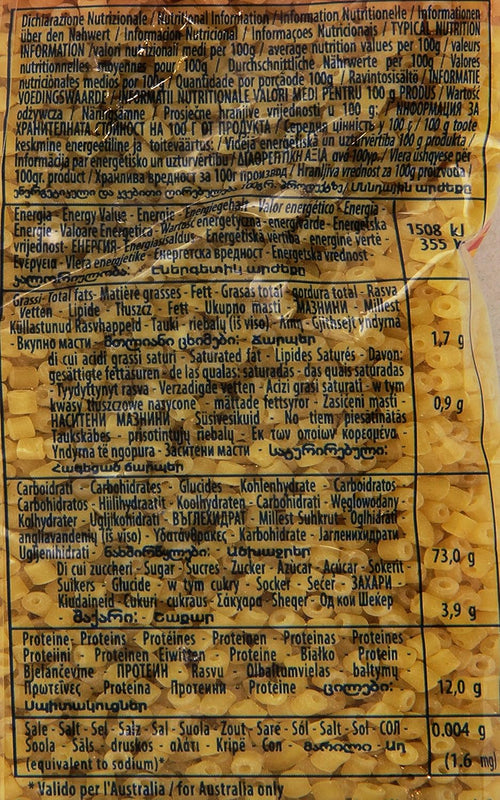 Dichiarazione Nutrizionale / Nutritional Information / Information Nutritionelle / Informationen
über den Nahwert / Información Nutricional / Informaçoes Nutricionais / TYPICAL NUTRITION
INFORMATION /valori nutrizionali medi per 100g / average nutrition values per 100g / valeurs
nutritionnelles moyennes pour 100g / Durchschnittliche Nährwerte per 100g / Valores
nutricionales medios por 100g / Quantidade por porçãode 100g / Ravintosisältö / INFORMATIE
VOEDINGSWAARDE / INFORMATII NUTRITIONALE VALORI MEDI PENTRU 100 g PRODUS / Wartość
odżywcza / Näringsämne / Prosječne hranjive vrijednosti g 100 g. ИНФОРМАЦИЯ ЗА
ХРАНИТЕЛНАТА ЦЕННОСТ НА 100 Г ОТ ПРОДУКТА / Середня цінність у 100 г / 100 g toote
keskmine energeetiline ja toiteväärtus: / Vidējā enerģētiskā un uzturvērtība 100 g produkta /
Informācija par enerģētisko un uzturvērtību / ΔΙΑΘΡΕΠΤΙΚΗ ΑΞΙΑ ανά 100γρ. / Vlera ushqyese për
100gr. product / Хранлива вредност за 100г производ / Hranljiva vrednost za 100g proizvoda /
Energia - Energy Value - Energie - Energiegehalt - Valor energético - Energia -
Energie - Valoare Energetica - Wartosc energetyczna - energivärde - Energetska
vrijednost - ЕНЕРГИЯ - Energiasisaldus - Enerģētiskā vērtība - energinė vertė -
Ενέργεια - Vlera energjetike - Енергетска вредност - Energetska vrednost -
კალორიულობა: Էներգետիկ արժեքը
1508 kJ
355
Grassi - Total fats - Matière grasses - Fett - Grasas total - gordura total - Rasva
Vetten - Lipide - Tłuszcz - Fett - Ukupno masti - МАЗНИНИ - Millest
Küllastunud Rasvhappeid - Tauki - riebalų (iš viso) - λίπη - Gjithsejt yndyrna
- Вкупно масти - მთლიანი ცხიმები: Ճարպեր
1,7 g
di cui acidi grassi saturi - Saturated fat - Lipides Saturés - Davon:
gesättigte fettsäuren - de las qualas: saturadas - das quais saturadas
- Tyydyttynyt rasva - Verzadigde vetten - Acizi grasi saturati - w tym
kwasy tłuszczowe nasycone - mättade fettsyror - Zasiceni masti -
НАСИТЕНИ МАЗНИНИ - Süsivesikuid - No tiem piesātinātās
Taukskābes - prisotintųjų riebalų - Εκ των οποίων κορεσμένα -
Yndyrna të ngopura - Заситени масти - სატურირებული:
Հագեցած ճարպեր
0,9 g
Carboidrati - Carbohidrates - Glucides - Kohlenhydrate - Carboidratos
Carbohidratos - Hiilihydraatit - Koolhydraten - Carbohidrati - Weglowodany -
Kolhydrater - Ugljikohidrati - ВЪГЛЕХИДРАТ - Millest Suhkrut - Ogļhidrāti
angliavandenių (iš viso) - Υδατάνθρακες - Karbohidrate - Јагленихидрати
Ugljenihidrati - ნახშირწყლები: Ածխաջրեր
73,0 g
Di cui zuccheri - Sugar - Sucres - Zucker - Azucar - Açúcar - Sokerit
Suikers - Glucide - w tym cukry - Socker - Secer - ЗАХАРИ -
Kiudaineid - Cukuri - cukraus - Σάκχαρα - Sheqer - Од кои Шекер
- შაქარი: - Շաքար
3,9 g
Proteine - Proteins - Protéines - Proteigen - Proteinas - Proteines
Proteiini - Proteinen Eiwitten - Proteine - Białko - Protein -
Bjelančevine - ПРОТЕИН - Rasvu - Olbaltumvielas - baltymų
Πρωτεΐνες - Proteina - Протеини - Proteine - ცილები:
Սպիտակուցներ
12,0 g
Sale - Salt - Sel - Salz - Sal - Suola - Zout - Sare - Sól - Salt - Sol - СОЛ -
Soola - Sāls - druskos - αλάτι - Kripë - Сол - მარილი - Աղ
(equivalent to sodium)*
0.004 g
(1.6 mg)
* Valido per l'Australia / for Australia only